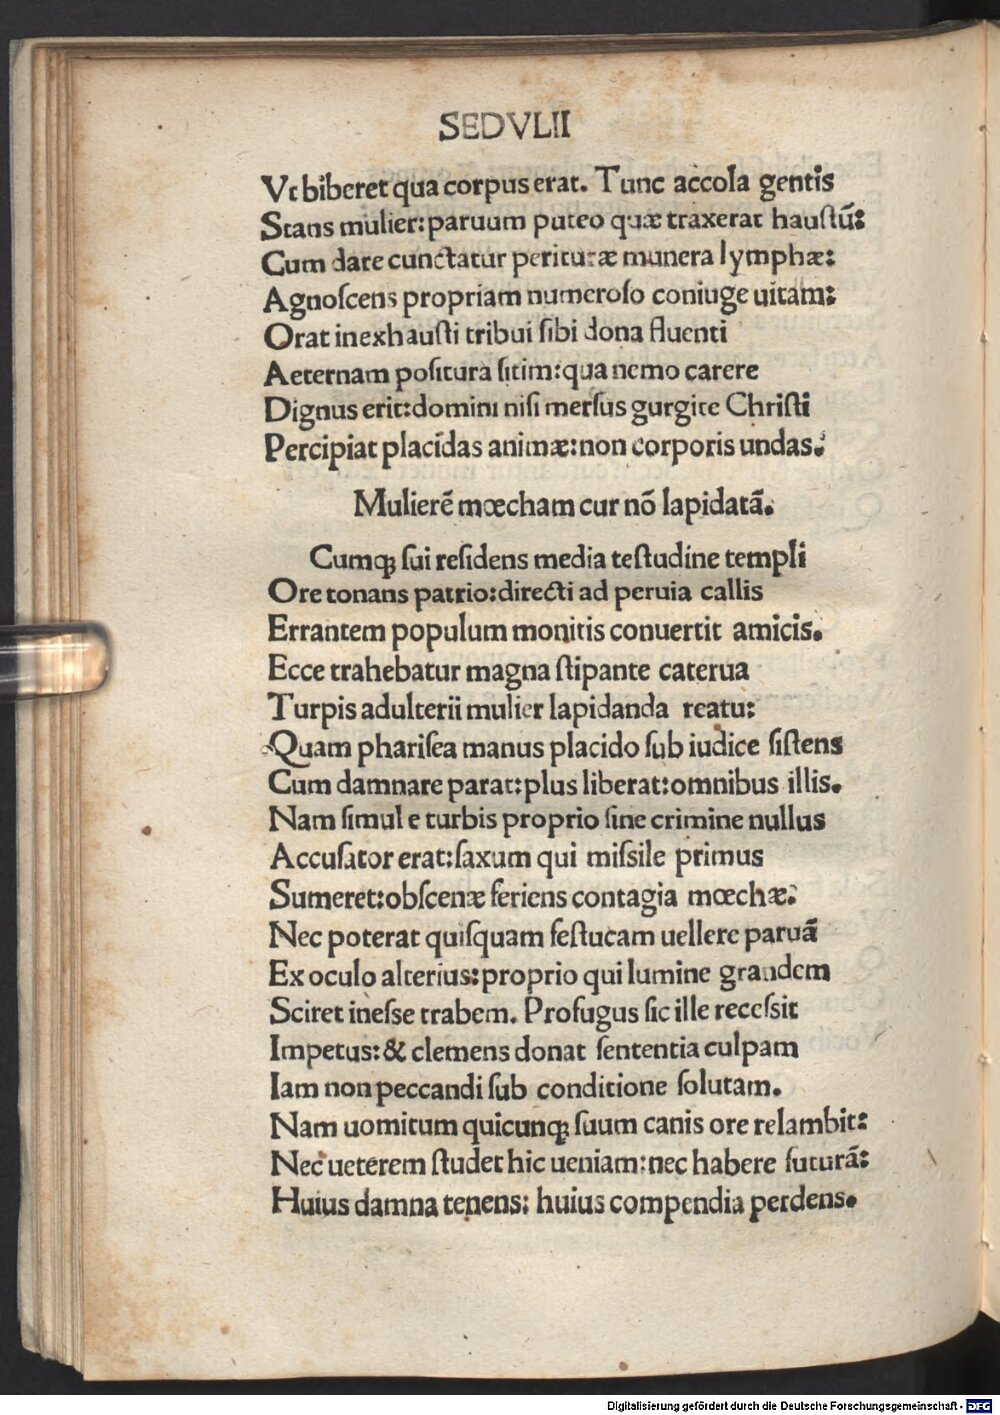 SEDVLII
Vt biberet qua corpus erat. Tunc accola gentis
Stans mulier: paruum puteo quæ traxerat haustū:
Cum dare cunctatur perituræ munera lymphæ:
Agnoſcens propriam numeroſo coniuge uitam:
Orat inexhauſti tribui ſibi dona fluenti
Aeternam poſitura ſitim: qua nemo carere
Dignus erit: domini niſi merſus gurgite Chriſti
Percipiat placidas animæ: non corporis undas.
Mulierē mœcham cur nō lapidatā.
Cumqꝫ ſui reſidens media teſtudine templi
Ore tonans patrio: directi ad peruia callis
Errantem populum monitis conuertit amicis.
Ecce trahebatur magna ſtipante caterua
Turpis adulterii mulier lapidanda reatu:
Quam phariſea manus placido ſub iudice ſiſtens
Cum damnare parat: plus liberat: omnibus illis.
Nam ſimul e turbis proprio ſine crimine nullus
Accuſator erat: ſaxum qui miſsile primus
Sumeret: obſcenæ feriens contagia mœchæ:
Nec poterat quiſquam feſtucam uellere paruā
Ex oculo alterius: proprio qui lumine grandem
Sciret ineſse trabem. Profugus ſic ille receſsit
Impetus: & clemens donat ſententia culpam
Iam non peccandi ſub conditione ſolutam.
Nam uomitum quicunqꝫ ſuum canis ore relambit:
Nec ueterem ſtudet hic ueniam: nec habere futurā:
Huius damna tenens: huius compendia perdens.
Digitalisierung gefördert durch die Deutsche Forschungsgemeinschaft - DFG